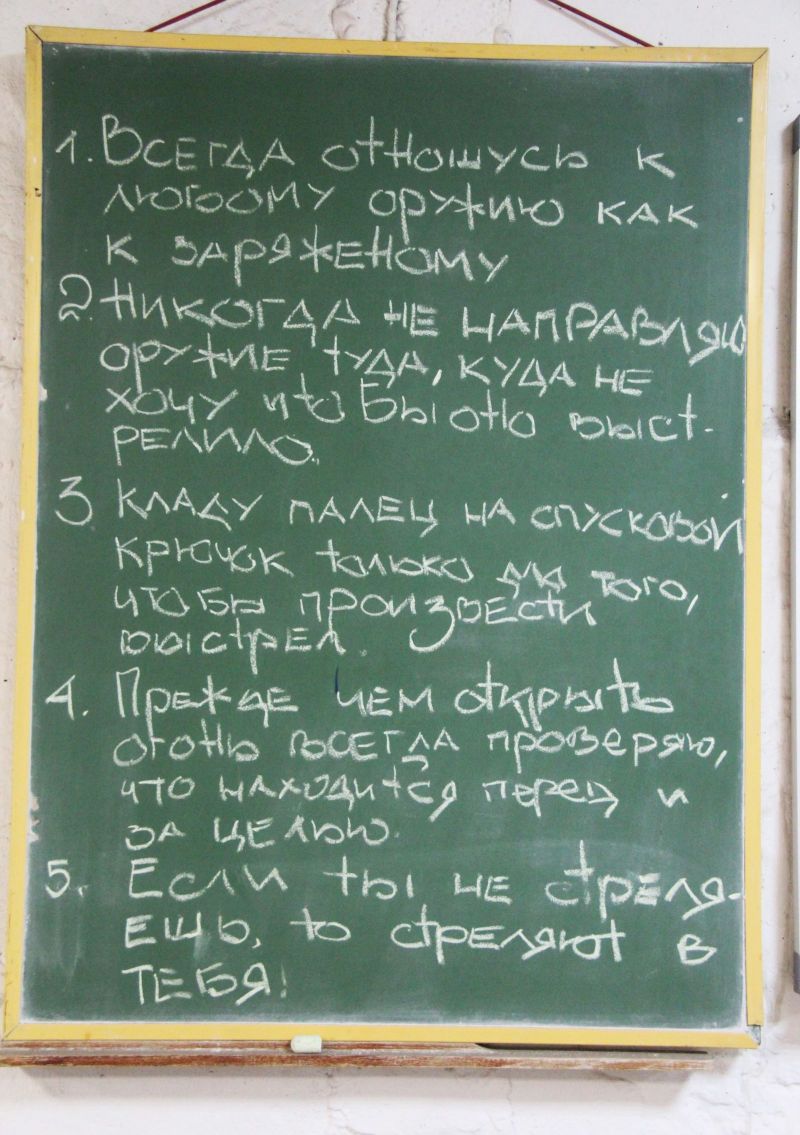 1. Всегда отношусь к
любому оружию как
к заряженому
2. Никогда не направляю
оружие туда, куда не
хочу что бы оно выст-
релило.
3 Кладу палец на спусковой
крючок только для того,
что бы произвести
выстрел.
4. Прежде чем открыть
огонь всегда проверяю,
что находится перед и
за целью.
5. Если ты не стреля-
ешь, то стреляют в
тебя!